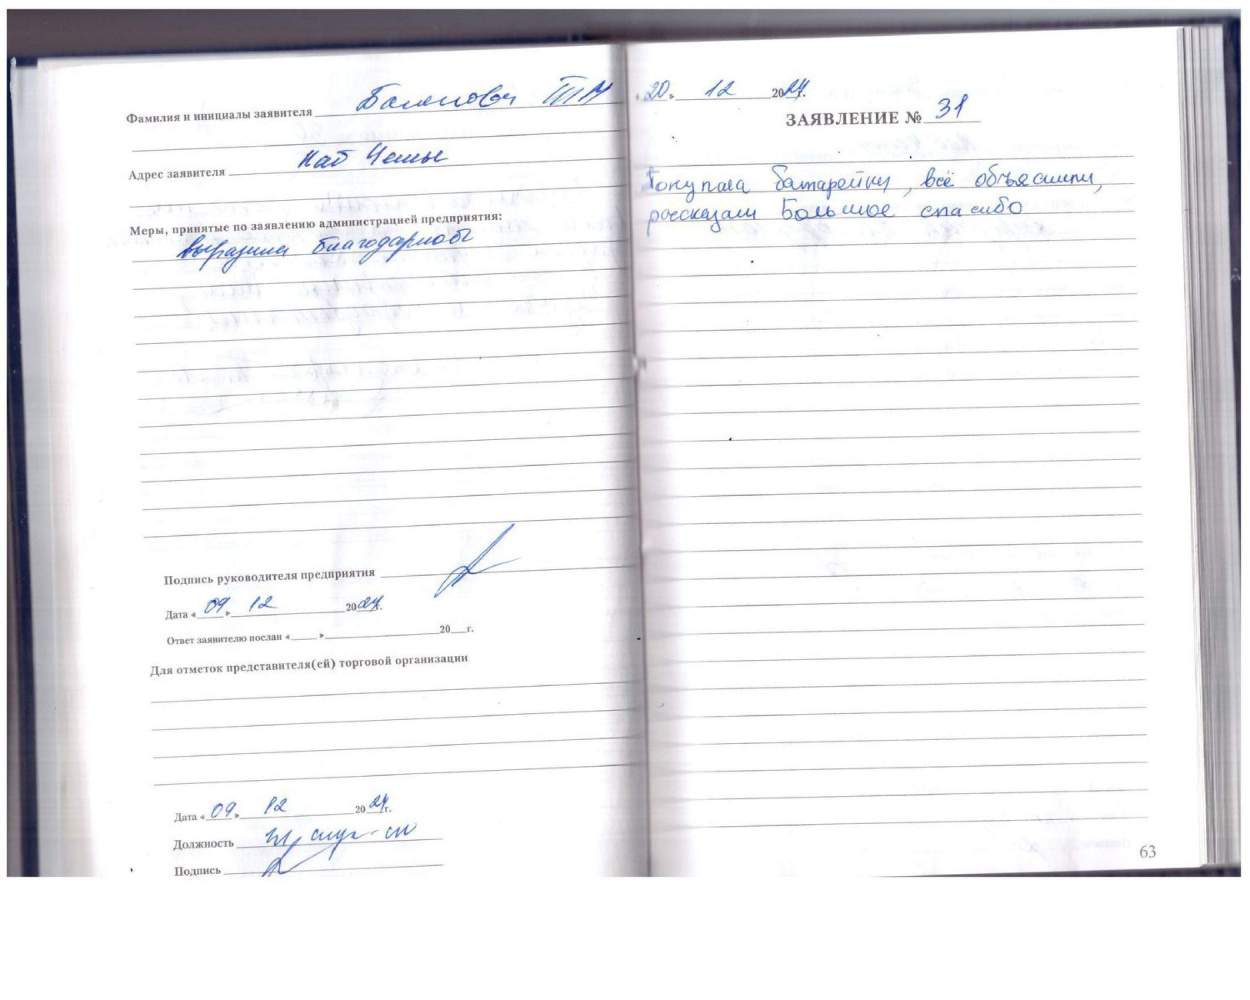 Фамилия и инициалы заявителя
Адрес заявителя наб
Меры, принятые по заявлению администрацией предприятия:
выразили
Подпись руководителя предприятия
Дата «09» 12 2024г.
Ответ заявителю послан «     »           20   г.
Для отметок представителя(ей) торговой организации
Дата «09» 12 2024г.
Должность
Подпись
20» 12 2024г.
ЗАЯВЛЕНИЕ № 31
Покупала батарейки, всё объяснили,
рассказали Большое спасибо
63